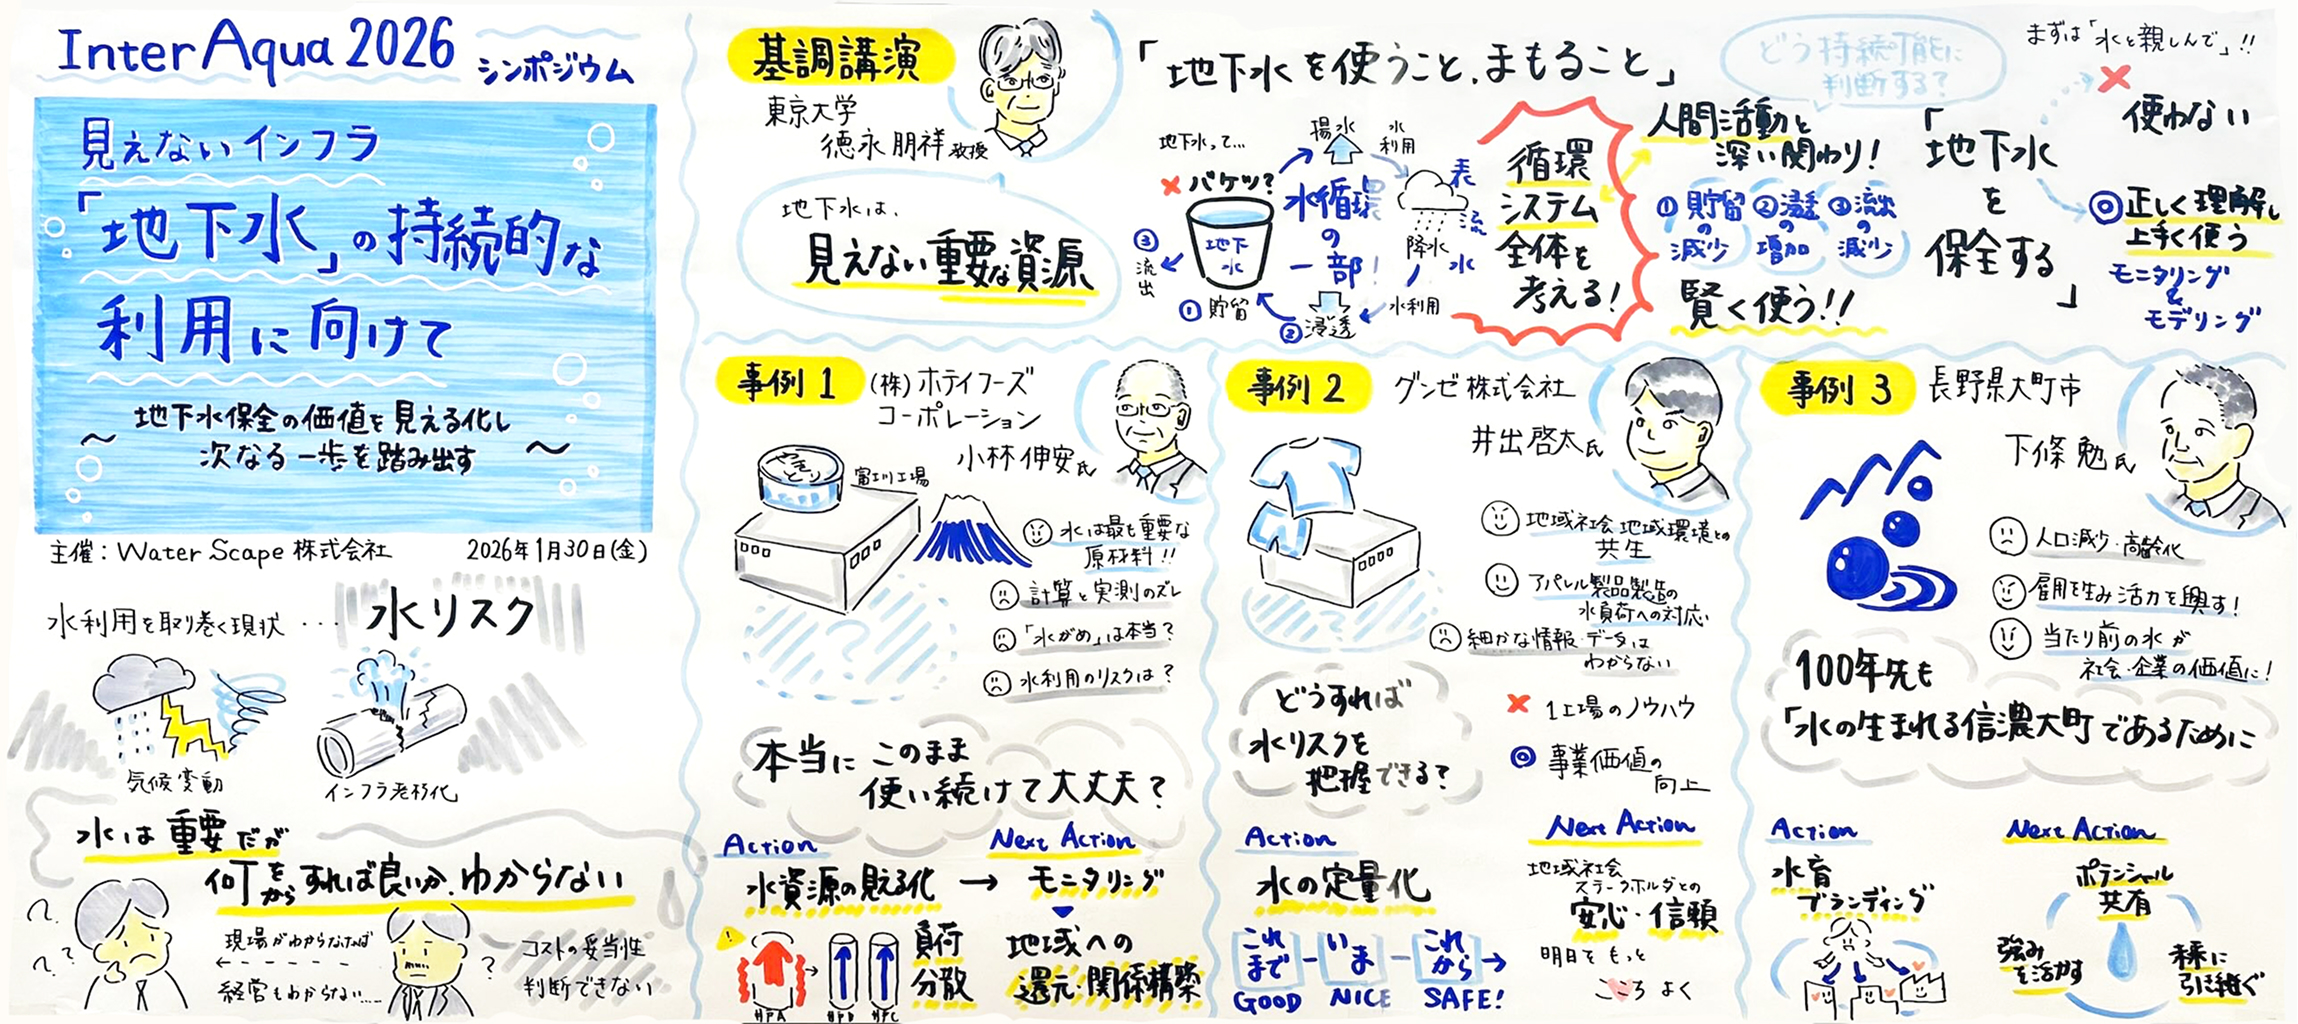 InterAqua 2026
シンポジウム
見えないインフラ
「地下水」の持続的な
利用に向けて
地下水保全の価値を見える化し
～次なる一歩を踏み出す～
主催：Water Scape 株式会社
2026年1月30日(金)
水利用を取り巻く現状 ...
水リスク
気候変動
インフラ老朽化
水は重要だが
何をからすれば良いか、わからない
現場がわからなければ
経営もわからない....
コストの妥当性
判断できない
基調講演
東京大学
徳永朋祥教授
地下水は、
見えない重要な資源
「地下水を使うこと、まもること」
地下水って...
× バケツ?
地下水
①貯留
②浸透
③流出
揚水
水利用
水循環
の
一部!
表流水
降水
水利用
循環
システム
全体を
考える!
どう持続可能に
判断する?
人間活動と
深い関わり!
①貯留の減少
②浸透の増加
③流出の減少
賢く使う!!
「地下水
を
保全する」
まずは「水と親しんで」!!
× 使わない
◎正しく理解し
上手く使う
モニタリング
&
モデリング
事例1
(株)ホテイフーズ
コーポレーション
小林伸安氏
やきとり
富士川工場
水は最も重要な
原材料!!
計算と実測のズレ
「水がめ」は本当?
水利用のリスクは?
?
本当にこのまま
使い続けて大丈夫?
Action
水資源の見える化
→
Next Action
モニタリング
負荷
分散
地域への
還元・関係構築
事例2
グンゼ株式会社
井出啓太氏
地域社会 地域環境との
共生
アパレル製品製造の
水負荷への対応
細かな情報・データは
わからない
どうすれば
水リスクを
把握できる?
× 1工場のノウハウ
◎ 事業価値の
向上
Action
水の定量化
これまで - いま - これから →
GOOD NICE SAFE!
Next Action
地域社会
ステークホルダとの
安心・信頼
明日をもっと
こころよく
事例3
長野県大町市
下條 勉氏
人口減少・高齢化
雇用を生み活力を興す!
当たり前の水が
社会・企業の価値に!
100年先も
「水の生まれる信濃大町であるために
Action
水育
ブランディング
Next Action
ポテンシャル
共有
強み
を活かす
未来に
引き継ぐ